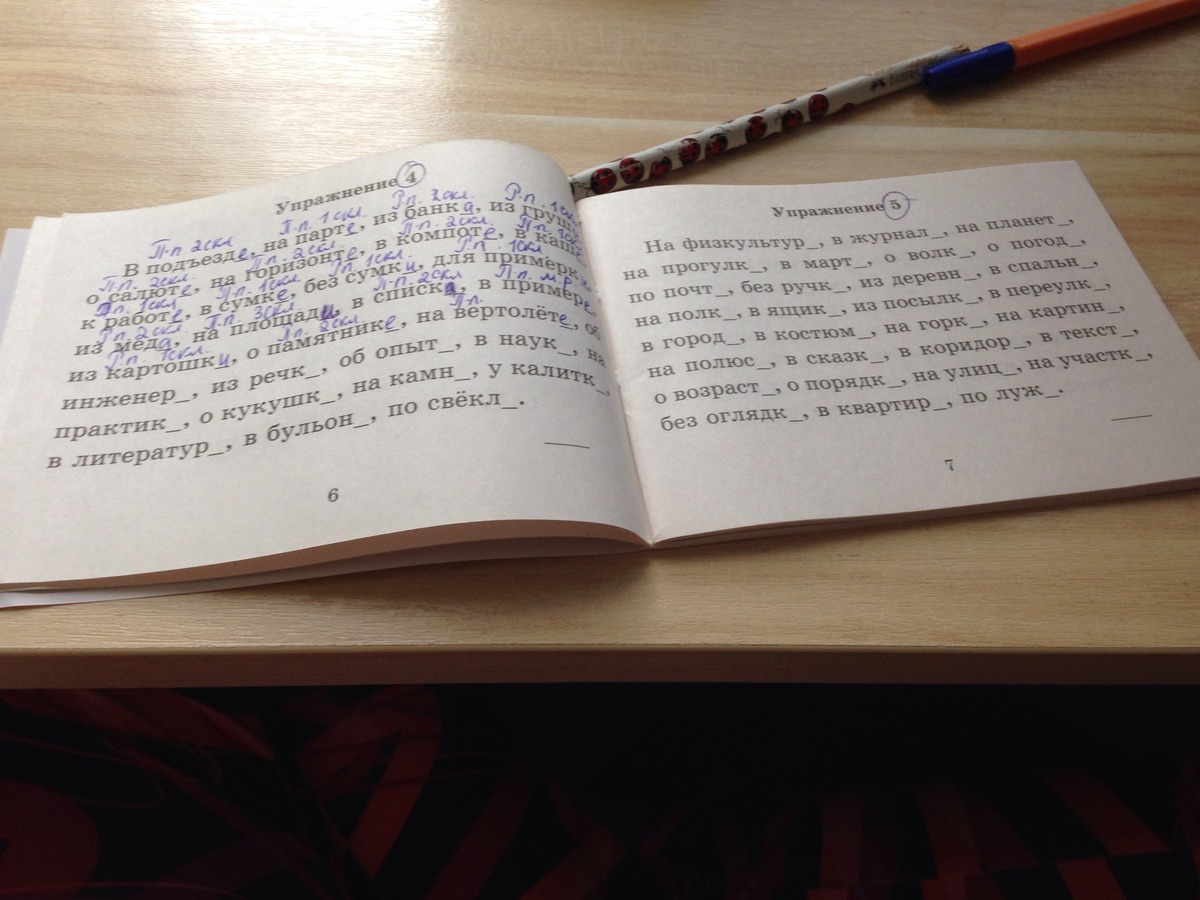 Упражнение 4
П.п 2скл П.п. 1скл. Р.п. 2скл. Р.п. 1скл.
В подъезде, на парте, из банка, из груш
П.п. 2скл. П.п. 2скл. П.п. 2скл. П.п. 1скл.
о салюте, на горизонте, в компоте, в каш
П.п. 1скл. Р.п. 1скл. Р.п. 1скл.
к работе, в сумке, без сумки, для примерк
Р.п. 2скл. П.п. 3скл. П.п. 2скл П.п. м.р.
из мёда, на площади, в списка, в примере
Р.п. 1скл. П.п. 2скл. П.п.
из картошки, о памятнике, на вертолёте, об
инженер_, из речк_, об опыт_, в наук_, на
практик_, о кукушк_, на камн_, у калитк_,
в литератур_, в бульон_, по свёкл_.
6
Упражнение 5
На физкультур_, в журнал_, на планет_,
на прогулк_, в март_, о волк_, о погод_,
по почт_, без ручк_, из деревн_, в спальн_,
на полк_, в ящик_, из посылк_, в переулк_,
в город_, в костюм_, на горк_, на картин_,
на полюс_, в сказк_, в коридор_, в текст_,
о возраст_, о порядк_, на улиц_, на участк_,
без оглядк_, в квартир_, по луж_.
7